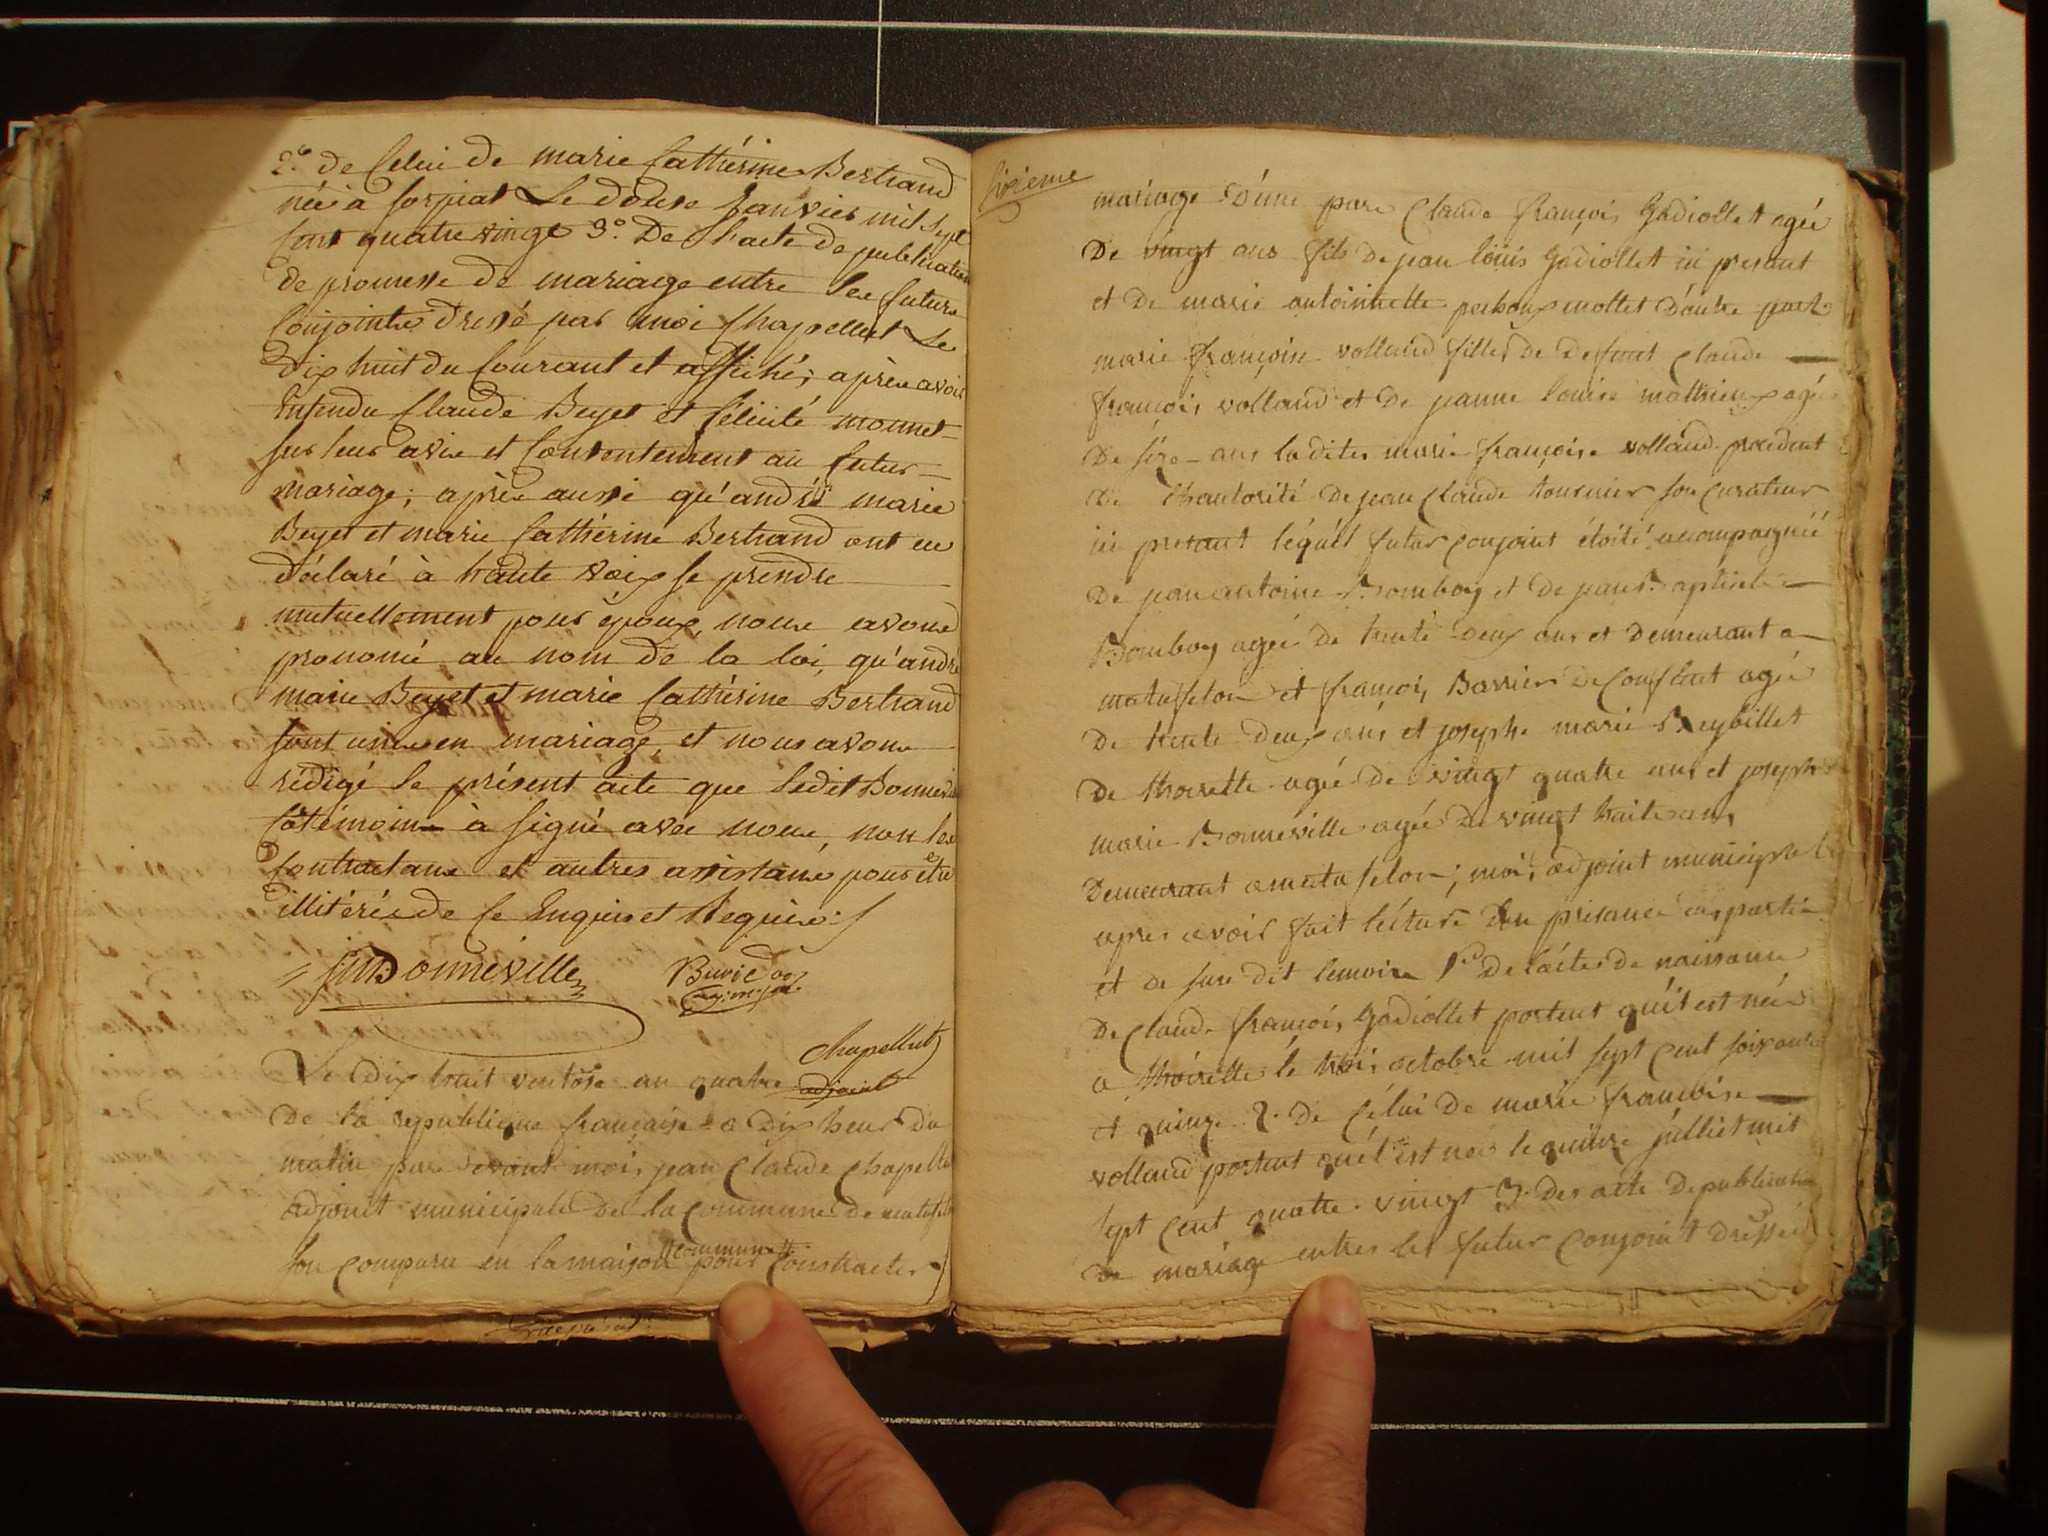 2.° de Celui de marie Cathérine Bertrand
née à Corgiat Le douse Janvier mil sept
Cent quatre vingt 3.° De l'acte de publication
de promesse de mariage entre les futurs
Conjointe dressé par moi Chapellut Le
Dix huit du Courant et affiché; après avoir
Entendu Claude Beyet et félicité monnet
sur leur avis et Consentement au futur
mariage; après aussi qu'andré marie
Beyet et marie Cathérine Bertrand ont eu
déclaré à haute voix se prendre
mutuellement pour époux, nous avons
prononcé au nom de la loi, qu'andré
marie Beyet et marie Cathérine Bertrand
sont unis en mariage, et nous avons
rédigé le présent acte que ledit Bonneville
Cotémoin à signé avec nous, non les
Contractans et autres assistans pour être
illitérés de Ce Enquis et Requis ./
jm Bonneville Buvied
Chapellut
adjoint
Le dix huit ventôse an quatre
De la republique française a dix heur du
matin par devant moi jean Claude Chapellu
adjoint municipale De la Commune de matafe
lon comparu en la maison commune pour Constracter
Sixieme
mariage d'une pare Claude françois Gadiollet agée
De vingt ans fils De jean louis Gadiollet ici presant
et De marie antoinnette mollet D'autre part
marie françoise volland filles De Defunt Claude
françois volland et De janne louise mathieux agé
De seze ans la dites marie françoise volland procédent
De l'hautorité De jean Claude tournier son Curateur
ici presant léquél futur conjoint étoité acompagnéé
De jean antoine Bomboy et De
Bomboy ageé de trente Deux ans et Demeurant a
matafelon et françois Barrier De Conflent agée
De trente Deux ans et joseph marie Reybillet
De thoirette ageé De vingt quatre ans et joseph
marie Bonneville ageé De vingt huite ans
Demeurant a matafelon; moi, adjoint municipal
apres avoir fait lécture En présance Des partie
et de sus dit temoins 1.° De l'acte De naissance
De Claude françois Gadiollet portent quéil est née
a thoirette le trois octobre mil sept Cent soixante
et quinze 2. De Célui De marie françoise
volland portent quél est née le quinze julliet mil
sept Cent quatre vingt 3. Des acte De publication
De mariage entres les futur Conjoint Dresseé